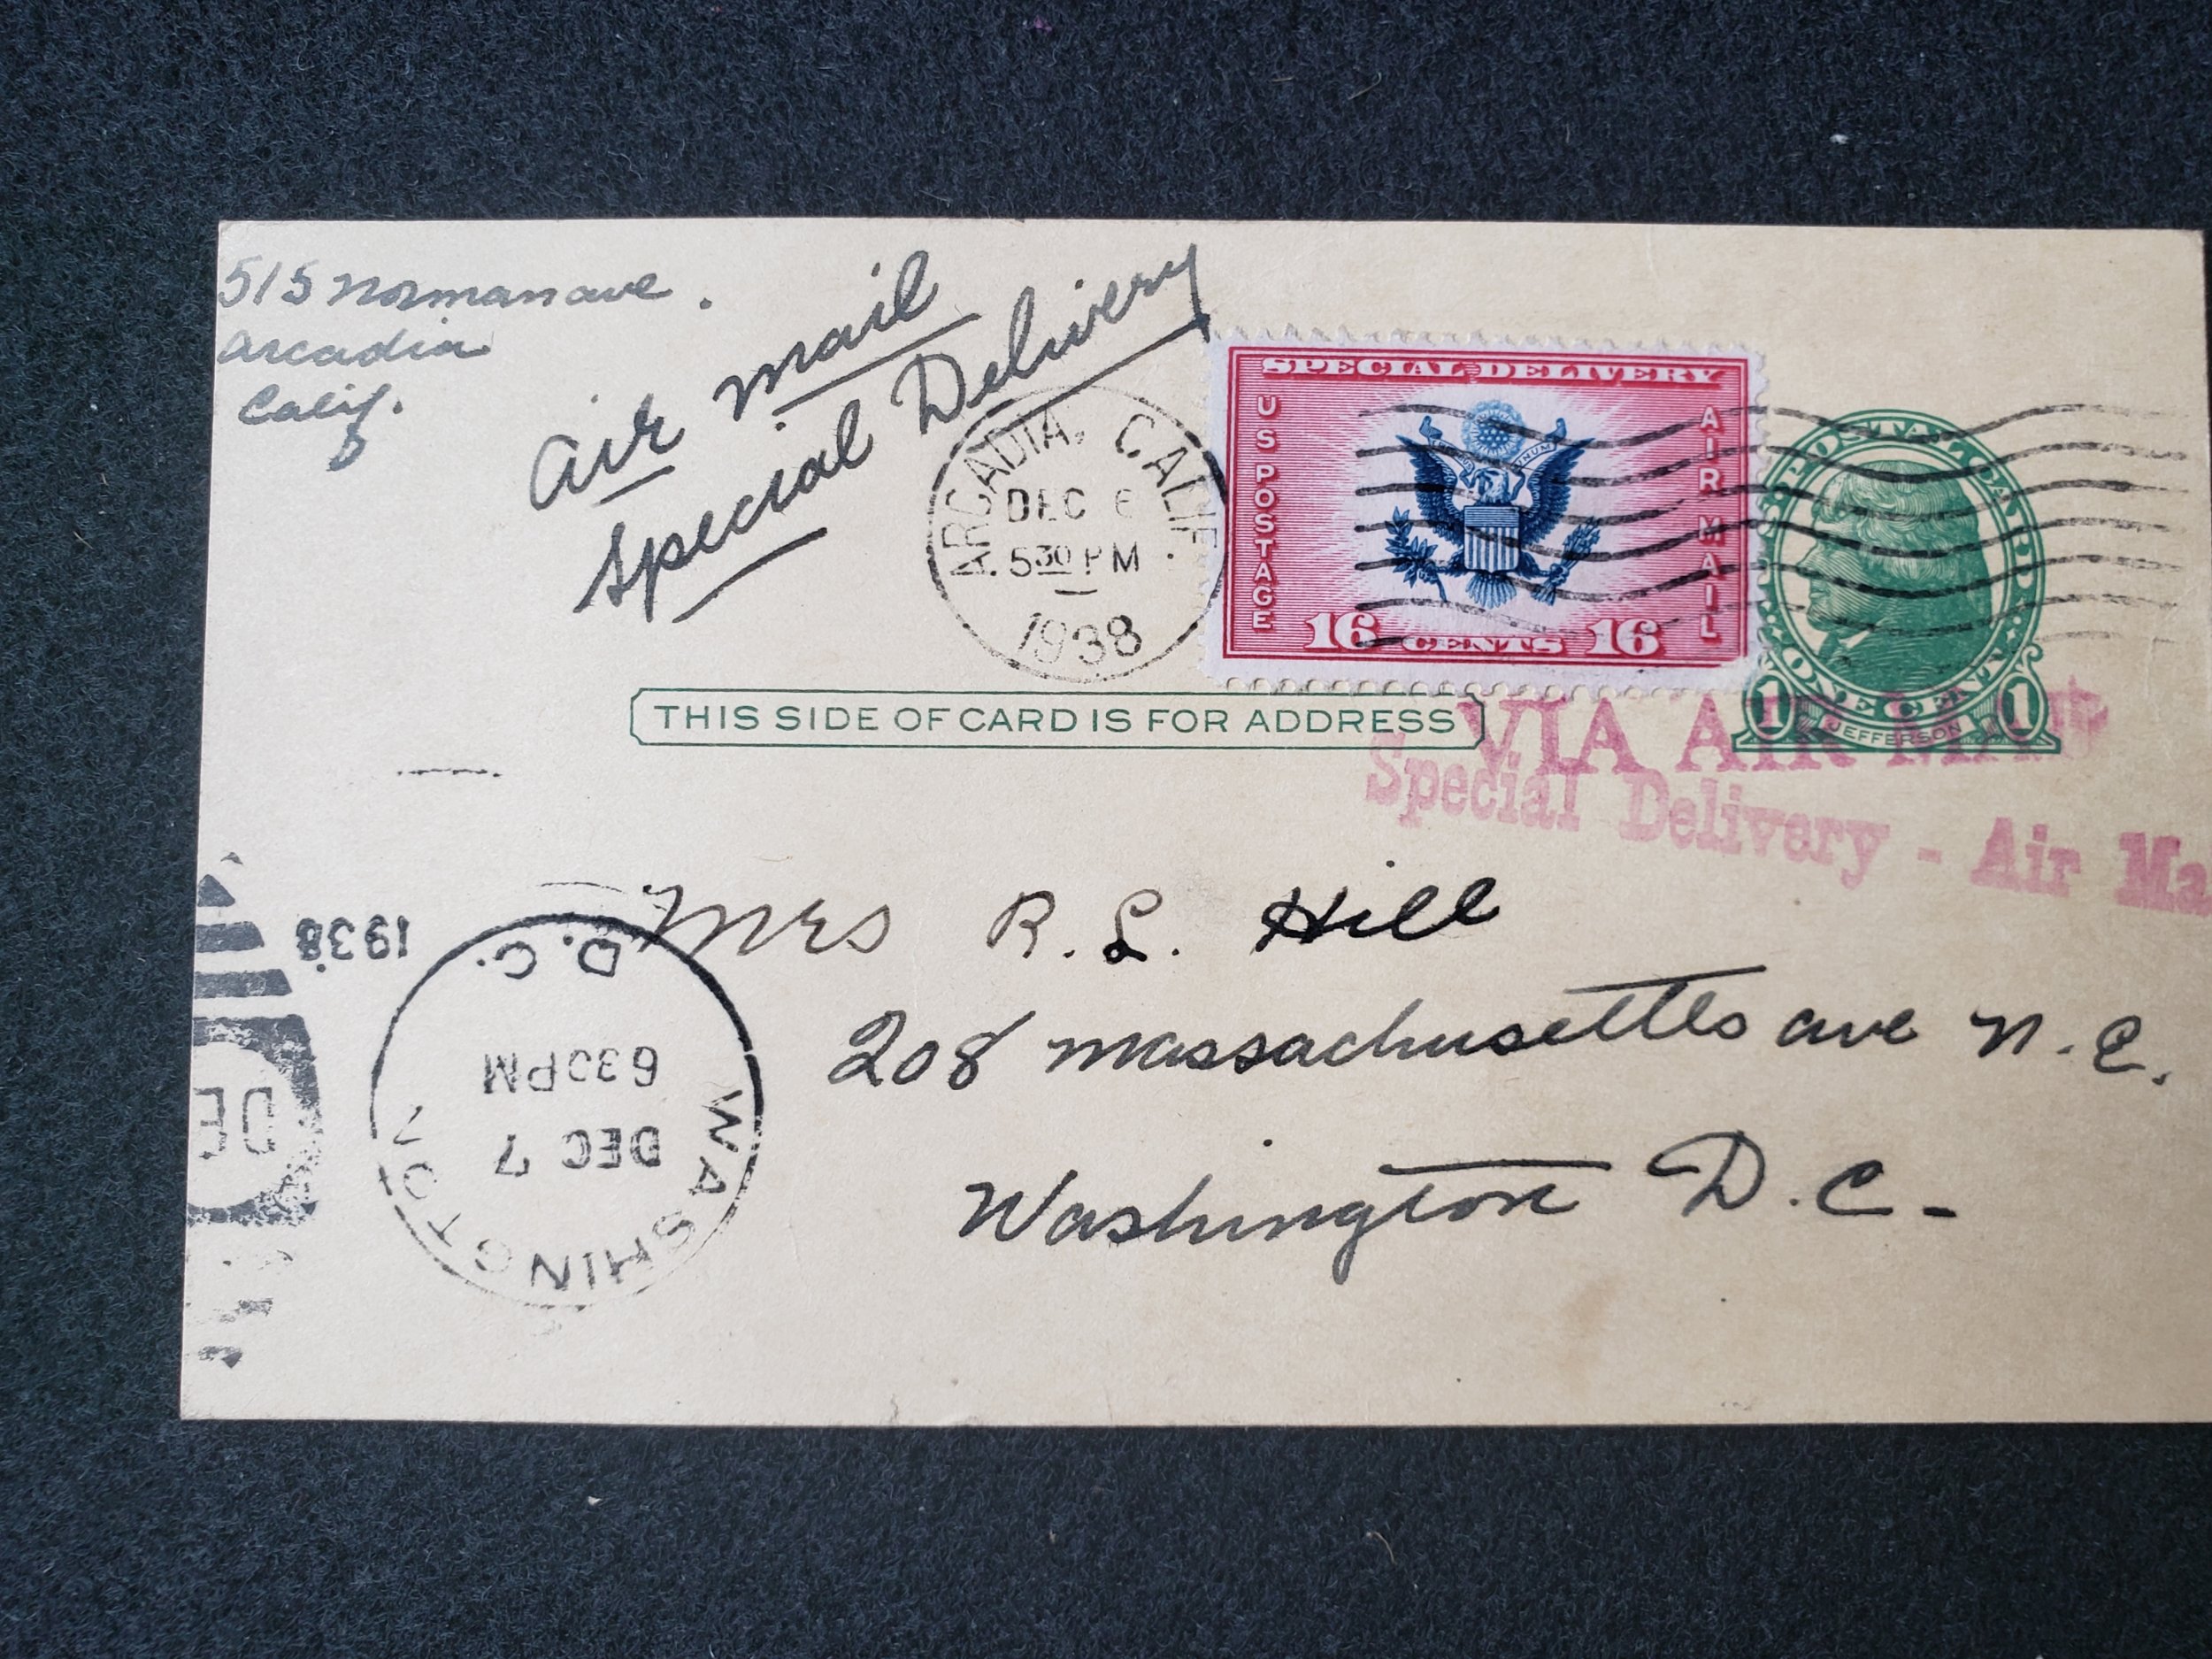 515 Norman ave.
Arcadia
Calif.
Air mail
Special Delivery
ARCADIA, CALIF.
DEC 6
5 30 PM
1938
SPECIAL DELIVERY
US POSTAGE
AIR MAIL
16 CENTS 16
POSTAL CARD
1 ONE CENT 1
JEFFERSON
THIS SIDE OF CARD IS FOR ADDRESS
VIA AIR MAIL
Special Delivery - Air Ma
Mrs R. L. Hill
208 Massachusettes ave N.E.
Washington D.C.
WASHINGTON
DEC 7
630PM
D.C.
1938
DE